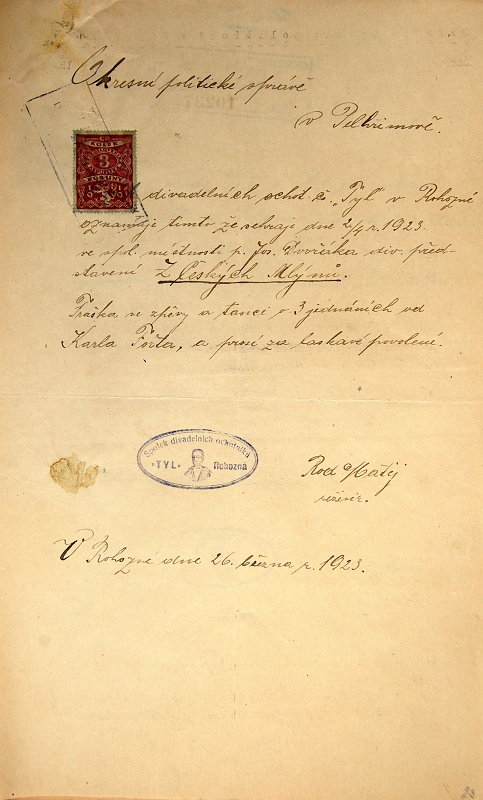 Okresní politické správě
v Pelhřimově.
KOLEK
3
KORUNY
divadelních ochot. č. „Tyl" v Rohozné
oznamuje tímto že sehraje dne 2/4 r. 1923.
ve spol. místnosti p. Jos. Dvořáka div. před-
stavení Z Českých Mlýnů.
Fraška ve zpěvy a tanci v 3 jednáních od
Karla Fořta, a prosí za laskavé povolení.
Spolek divadelních ochotníků
"TYL" Rohozná
Rod Matěj
režisér.
V Rohozné dne 26. března r. 1923.